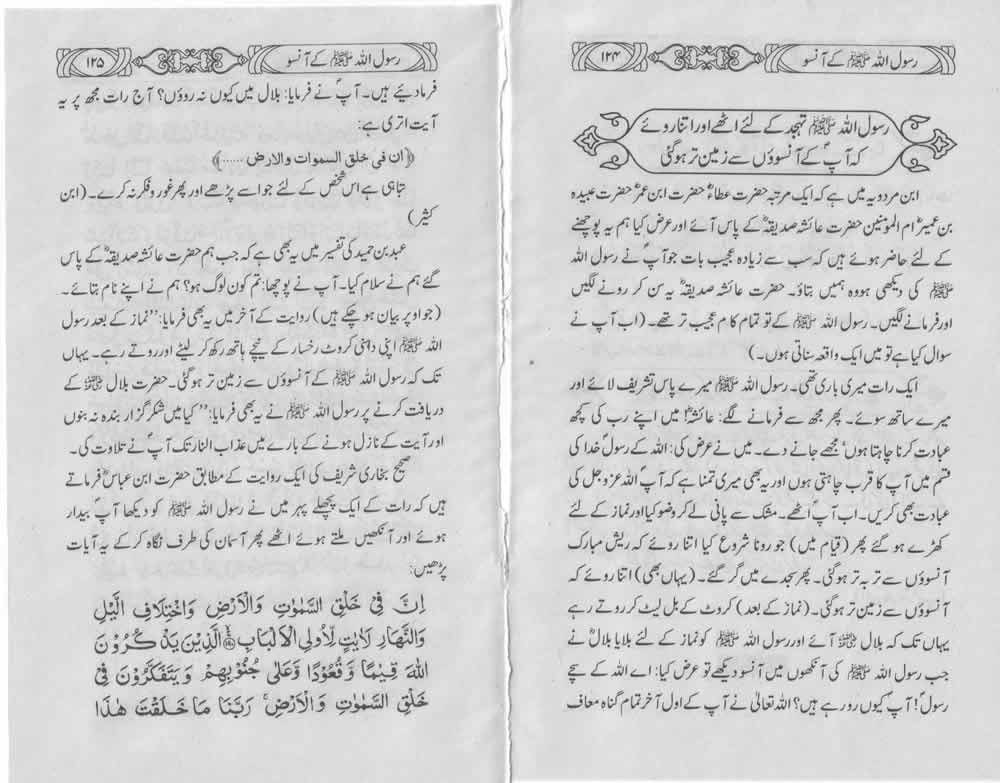 رسول اللہ ﷺ کے آنسو
۱۲۴
رسول اللہ ﷺ تہجد کے لئے اٹھے اور اتنا روئے
کہ آپؐ کے آنسوؤں سے زمین تر ہوگئی
ابن مردویہ میں ہے کہ ایک مرتبہ حضرت عطاءؒ حضرت ابن عمرؓ حضرت عبیدہ
بن عمیرؓ ام المؤمنین حضرت عائشہ صدیقہؓ کے پاس آئے اور عرض کیا ہم یہ پوچھنے
کے لئے حاضر ہوئے ہیں کہ سب سے زیادہ عجیب بات جو آپؐ نے رسول اللہ
ﷺ کی دیکھی ہو وہ ہمیں بتاؤ۔ حضرت عائشہ صدیقہؓ یہ سن کر رونے لگیں
اور فرمانے لگیں۔ رسول اللہ ﷺ کے تو تمام کام عجیب تر تھے۔ (اب آپ نے
سوال کیا ہے تو میں ایک واقعہ سناتی ہوں۔)
ایک رات میری باری تھی۔ رسول اللہ ﷺ میرے پاس تشریف لائے اور
میرے ساتھ سوئے۔ پھر مجھ سے فرمانے لگے: عائشہؓ! میں اپنے رب کی کچھ
عبادت کرنا چاہتا ہوں‘ مجھے جانے دے۔ میں نے عرض کی: اللہ کے رسولؐ خدا کی
قسم میں آپ کا قرب چاہتی ہوں اور یہ بھی میری تمنا ہے کہ آپؐ اللہ عزوجل کی
عبادت بھی کریں۔ اب آپؐ اٹھے۔ مشک سے پانی لے کر وضو کیا اور نماز کے لئے
کھڑے ہو گئے پھر (قیام میں) جو رونا شروع کیا اتنا روئے کہ ریش مبارک
آنسوؤں سے تر بہ تر ہوگئی۔ پھر سجدے میں گر گئے۔ (یہاں بھی) اتنا روئے کہ
آنسوؤں سے زمین تر ہوگئی۔ (نماز کے بعد) کروٹ کے بل لیٹ کر روتے رہے
یہاں تک کہ بلالؓ آئے اور رسول اللہ ﷺ کو نماز کے لئے بلایا بلالؓ نے
جب رسول اللہ ﷺ کی آنکھوں میں آنسو دیکھے تو عرض کیا: اے اللہ کے سچے
رسولؐ! آپؐ کیوں رو رہے ہیں؟ اللہ تعالیٰ نے آپ کے اول آخر تمام گناہ معاف
رسول اللہ ﷺ کے آنسو
۱۲۵
فرما دئیے ہیں۔ آپؐ نے فرمایا: بلال میں کیوں نہ روؤں؟ آج رات مجھ پر یہ
آیت اتری ہے:
﴿ان فی خلق السموات والارض ......﴾
تباہی ہے اس شخص کے لئے جو اسے پڑھے اور پھر غور و فکر نہ کرے۔ (ابن
کثیر)
عبد بن حمید کی تفسیر میں یہ بھی ہے کہ جب ہم حضرت عائشہ صدیقہؓ کے پاس
گئے ہم نے سلام کیا۔ آپ نے پوچھا: تم کون لوگ ہو؟ ہم نے اپنے نام بتائے۔
(جو اوپر بیان ہو چکے ہیں) روایت کے آخر میں یہ بھی فرمایا: ”نماز کے بعد رسول
اللہ ﷺ اپنی داہنی کروٹ رخسار کے نیچے ہاتھ رکھ کر لیٹے اور روتے رہے۔ یہاں
تک کہ رسول اللہ ﷺ کے آنسوؤں سے زمین تر ہوگئی۔ حضرت بلالؓ کے
دریافت کرنے پر رسول اللہ ﷺ نے یہ بھی فرمایا: ’’کیا میں شکر گزار بندہ نہ بنوں
اور آیت کے نازل ہونے کے بارے میں عذاب النار تک آپؐ نے تلاوت کی۔
صحیح بخاری شریف کی ایک روایت کے مطابق حضرت ابن عباسؓ فرماتے
ہیں کہ رات کے ایک پچھلے پہر میں نے رسول اللہ ﷺ کو دیکھا آپؐ بیدار
ہوئے اور آنکھیں ملتے ہوئے اٹھے پھر آسمان کی طرف نگاہ کر کے یہ آیات
پڑھیں:
اِنَّ فِيْ خَلْقِ السَّمٰوٰتِ وَالْاَرْضِ وَاخْتِلَافِ الَّيْلِ
وَالنَّهَارِ لَاٰيٰتٍ لِّاُولِي الْاَلْبَابِ ۝ الَّذِيْنَ يَذْكُرُوْنَ
اللّٰهَ قِيٰمًا وَّقُعُوْدًا وَّعَلٰى جُنُوْبِهِمْ وَيَتَفَكَّرُوْنَ فِيْ
خَلْقِ السَّمٰوٰتِ وَالْاَرْضِ ۚ رَبَّنَا مَا خَلَقْتَ هٰذَا